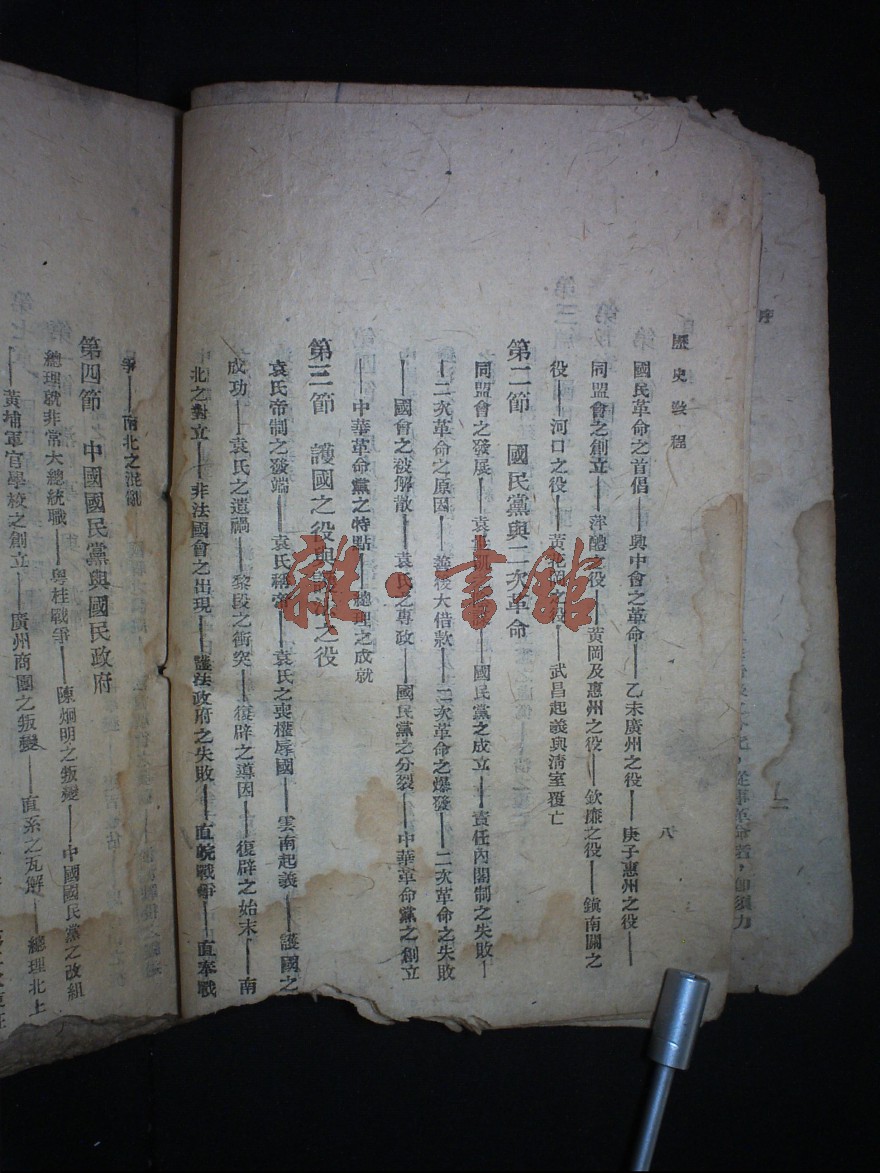 歷史教程
八
國民革命之首倡——興中會之革命——乙未廣州之役——庚子惠州之役——
同盟會之創立——萍醴之役——黃岡及惠州之役——欽廉之役——鎮南關之
役——河口之役——黃花岡之役——武昌起義與淸室覆亡
第二節 國民黨與二次革命
同盟會之發展——袁世凱——國民黨之成立——責任內閣制之失敗—
—二次革命之原因——善後大借款——二次革命之爆發——二次革命之失敗
——國會之被解散——袁氏之專政——國民黨之分裂——中華革命黨之創立
——中華革命黨之特點——總理之成就
第三節 護國之役與護法之役
袁氏帝制之發端——袁氏稱帝——袁氏之喪權辱國——雲南起義——護國之
成功——袁氏之遺禍——黎段之衝突——復辟之導因——復辟之始末——南
北之對立——非法國會之出現——護法政府之失敗——直皖戰爭——直奉戰
爭——南北之混亂
第四節 中國國民黨與國民政府
總理就非常大總統職——粵桂戰爭——陳烱明之叛變——中國國民黨之改組
——黃埔軍官學校之創立——廣州商團之叛變——直系之瓦解——總理北上
序
二
從事革命者，即須力
雜·書館